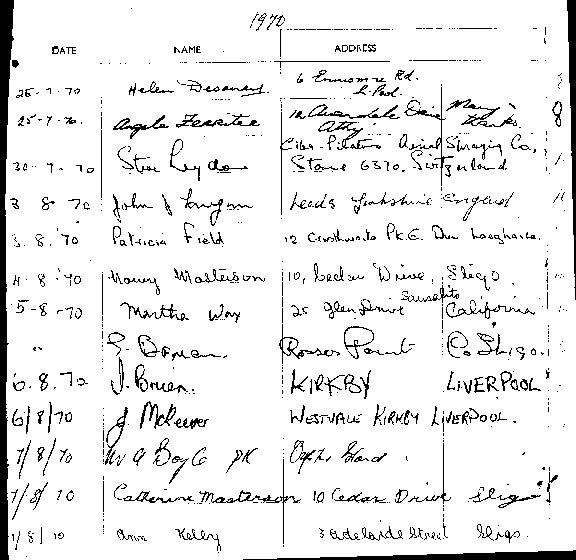 1970
DATE NAME ADDRESS
25-7-70 Helen 6 Rd.
L. Pool.
25-7-70. Angela 12 Avondale Drive Many Thanks
Athy
Ciba-Pilatus Aerial Spraying Co,
30-7-70 Steve Stans 6370.
3 8 70 John J Leeds Yorkshire England
3.8.70 Patricia Field 12 PK.E. Dun Laoghaire.
4.8.'70 Nancy Masterson 10, Cedar Drive, Sligo.
5-8-70 Martha Way 25 Glen Drive Sausalito California
" Rosses Point Co Sligo.
6.8.70 J. Brien. KIRKBY LIVERPOOL
6/8/70 J McKeever WESTVALE KIRKBY LIVERPOOL.
7/8/70 Boyle PK
7/8/70 Catherine Masterson 10 Cedar Drive Sligo
7/8/70 Ann Kelly 3 Adelaide Street Sligo.